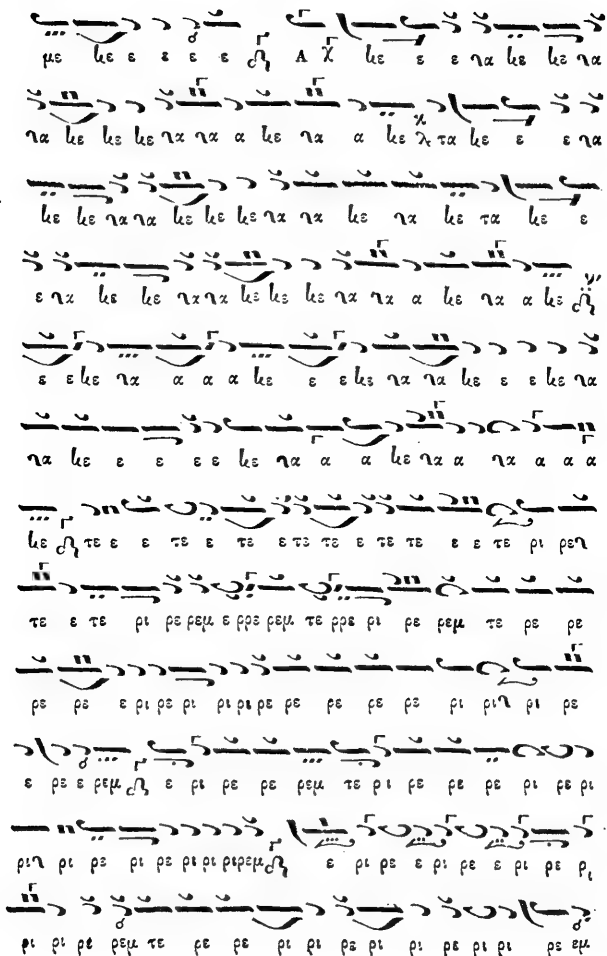 με κε ε ε ε ε Α κε ε ε να κε κε να
να κε κε κε να να α κε να α κε τα κε ε ε να
κε κε να να κε κε κε να να κε να κε τα κε ε
ε να κε κε να να κε κε κε να να α κε να α κε
ε ε κε να α α α κε ε ε κε να να κε ε ε κε να
να κε ε ε ε ε κε να α α κε να α να α α α
κε τε ε ε τε ε τε ε τε τε ε τε τε ε ε τε ρι ρεν
τε ε τε ρι ρε ρεμ ε ρρε ρεμ τε ρρε ρι ρε ρεμ τε ρε ρε
ρε ρε ε ρι ρε ρι ρι ρι ρε ρε ρε ρε ρε ρι ριν ρι ρε
ε ρε ε ρεμ ε ρι ρε ρε ρεμ τε ρι ρε ρε ρε ρι ρε ρι
ριν ρι ρε ρι ρε ρι ρι ρι ρε ρεμ ε ρι ρε ε ρι ρε ε ρι ρε ρι
ρι ρι ρε ρεμ τε ρε ρε ρι ρι ρε ρι ρι ρε ρι ρι ρε εμ